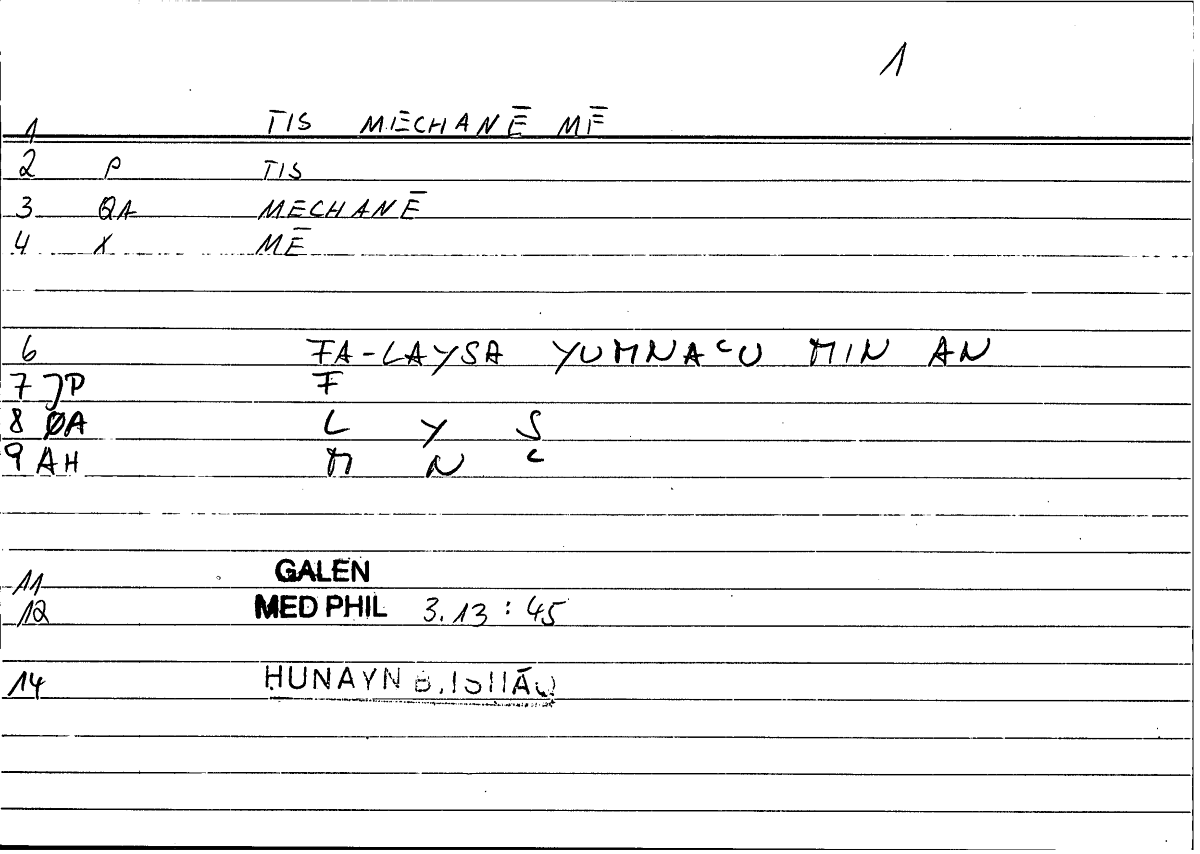 1
1 TIS MĒCHANĒ MĒ
2 P TIS
3 QA MECHANĒ
4 X MĒ
6 FA-LAYSA YUMNAʿU MIN AN
7 JP F
8 ØA L Y S
9 AH M N ʿ
11 GALEN
12 MED PHIL 3.13 : 45
14 ḤUNAYN B.